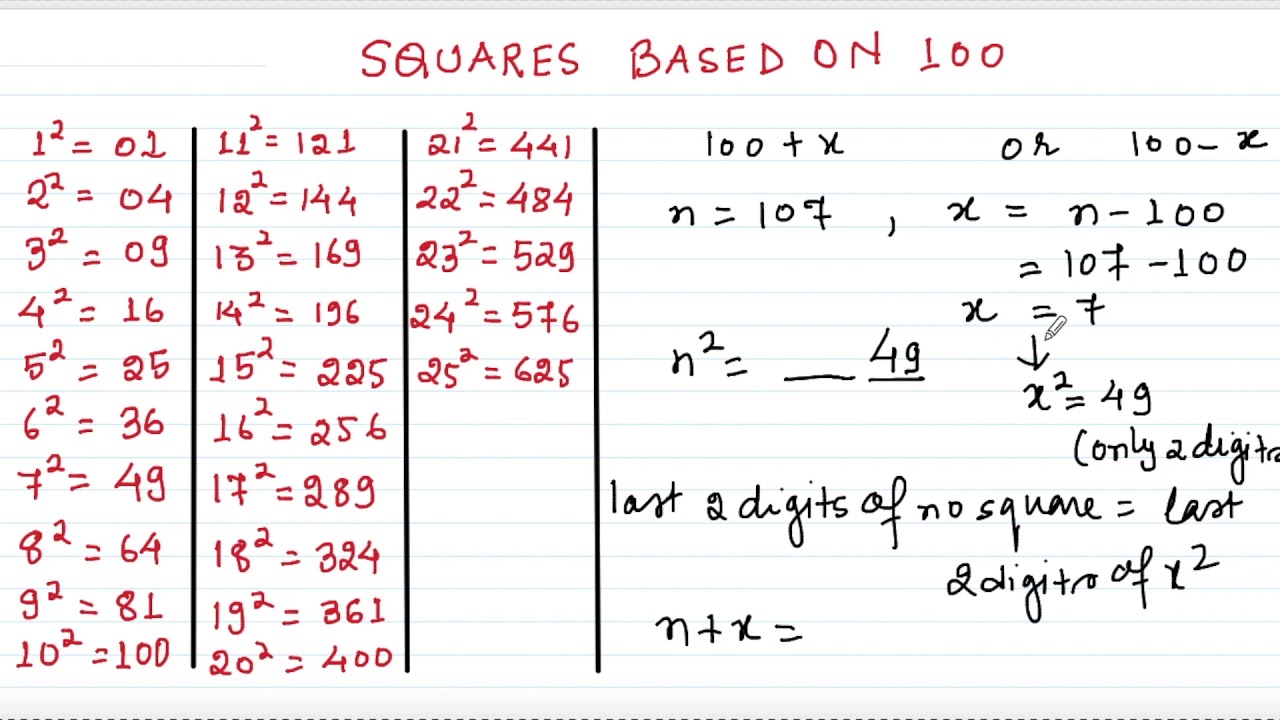 SQUARES BASED ON 100
1² = 01
2² = 04
3² = 09
4² = 16
5² = 25
6² = 36
7² = 49
8² = 64
9² = 81
10² = 100
11² = 121
12² = 144
13² = 169
14² = 196
15² = 225
16² = 256
17² = 289
18² = 324
19² = 361
20² = 400
21² = 441
22² = 484
23² = 529
24² = 576
25² = 625
100 + x or 100 - x
n = 107 , x = n - 100
= 107 - 100
x = 7
n² = __ 49 ↓
x² = 49
(only 2 digits
last 2 digits of no square = last
2 digits of x²
n + x =